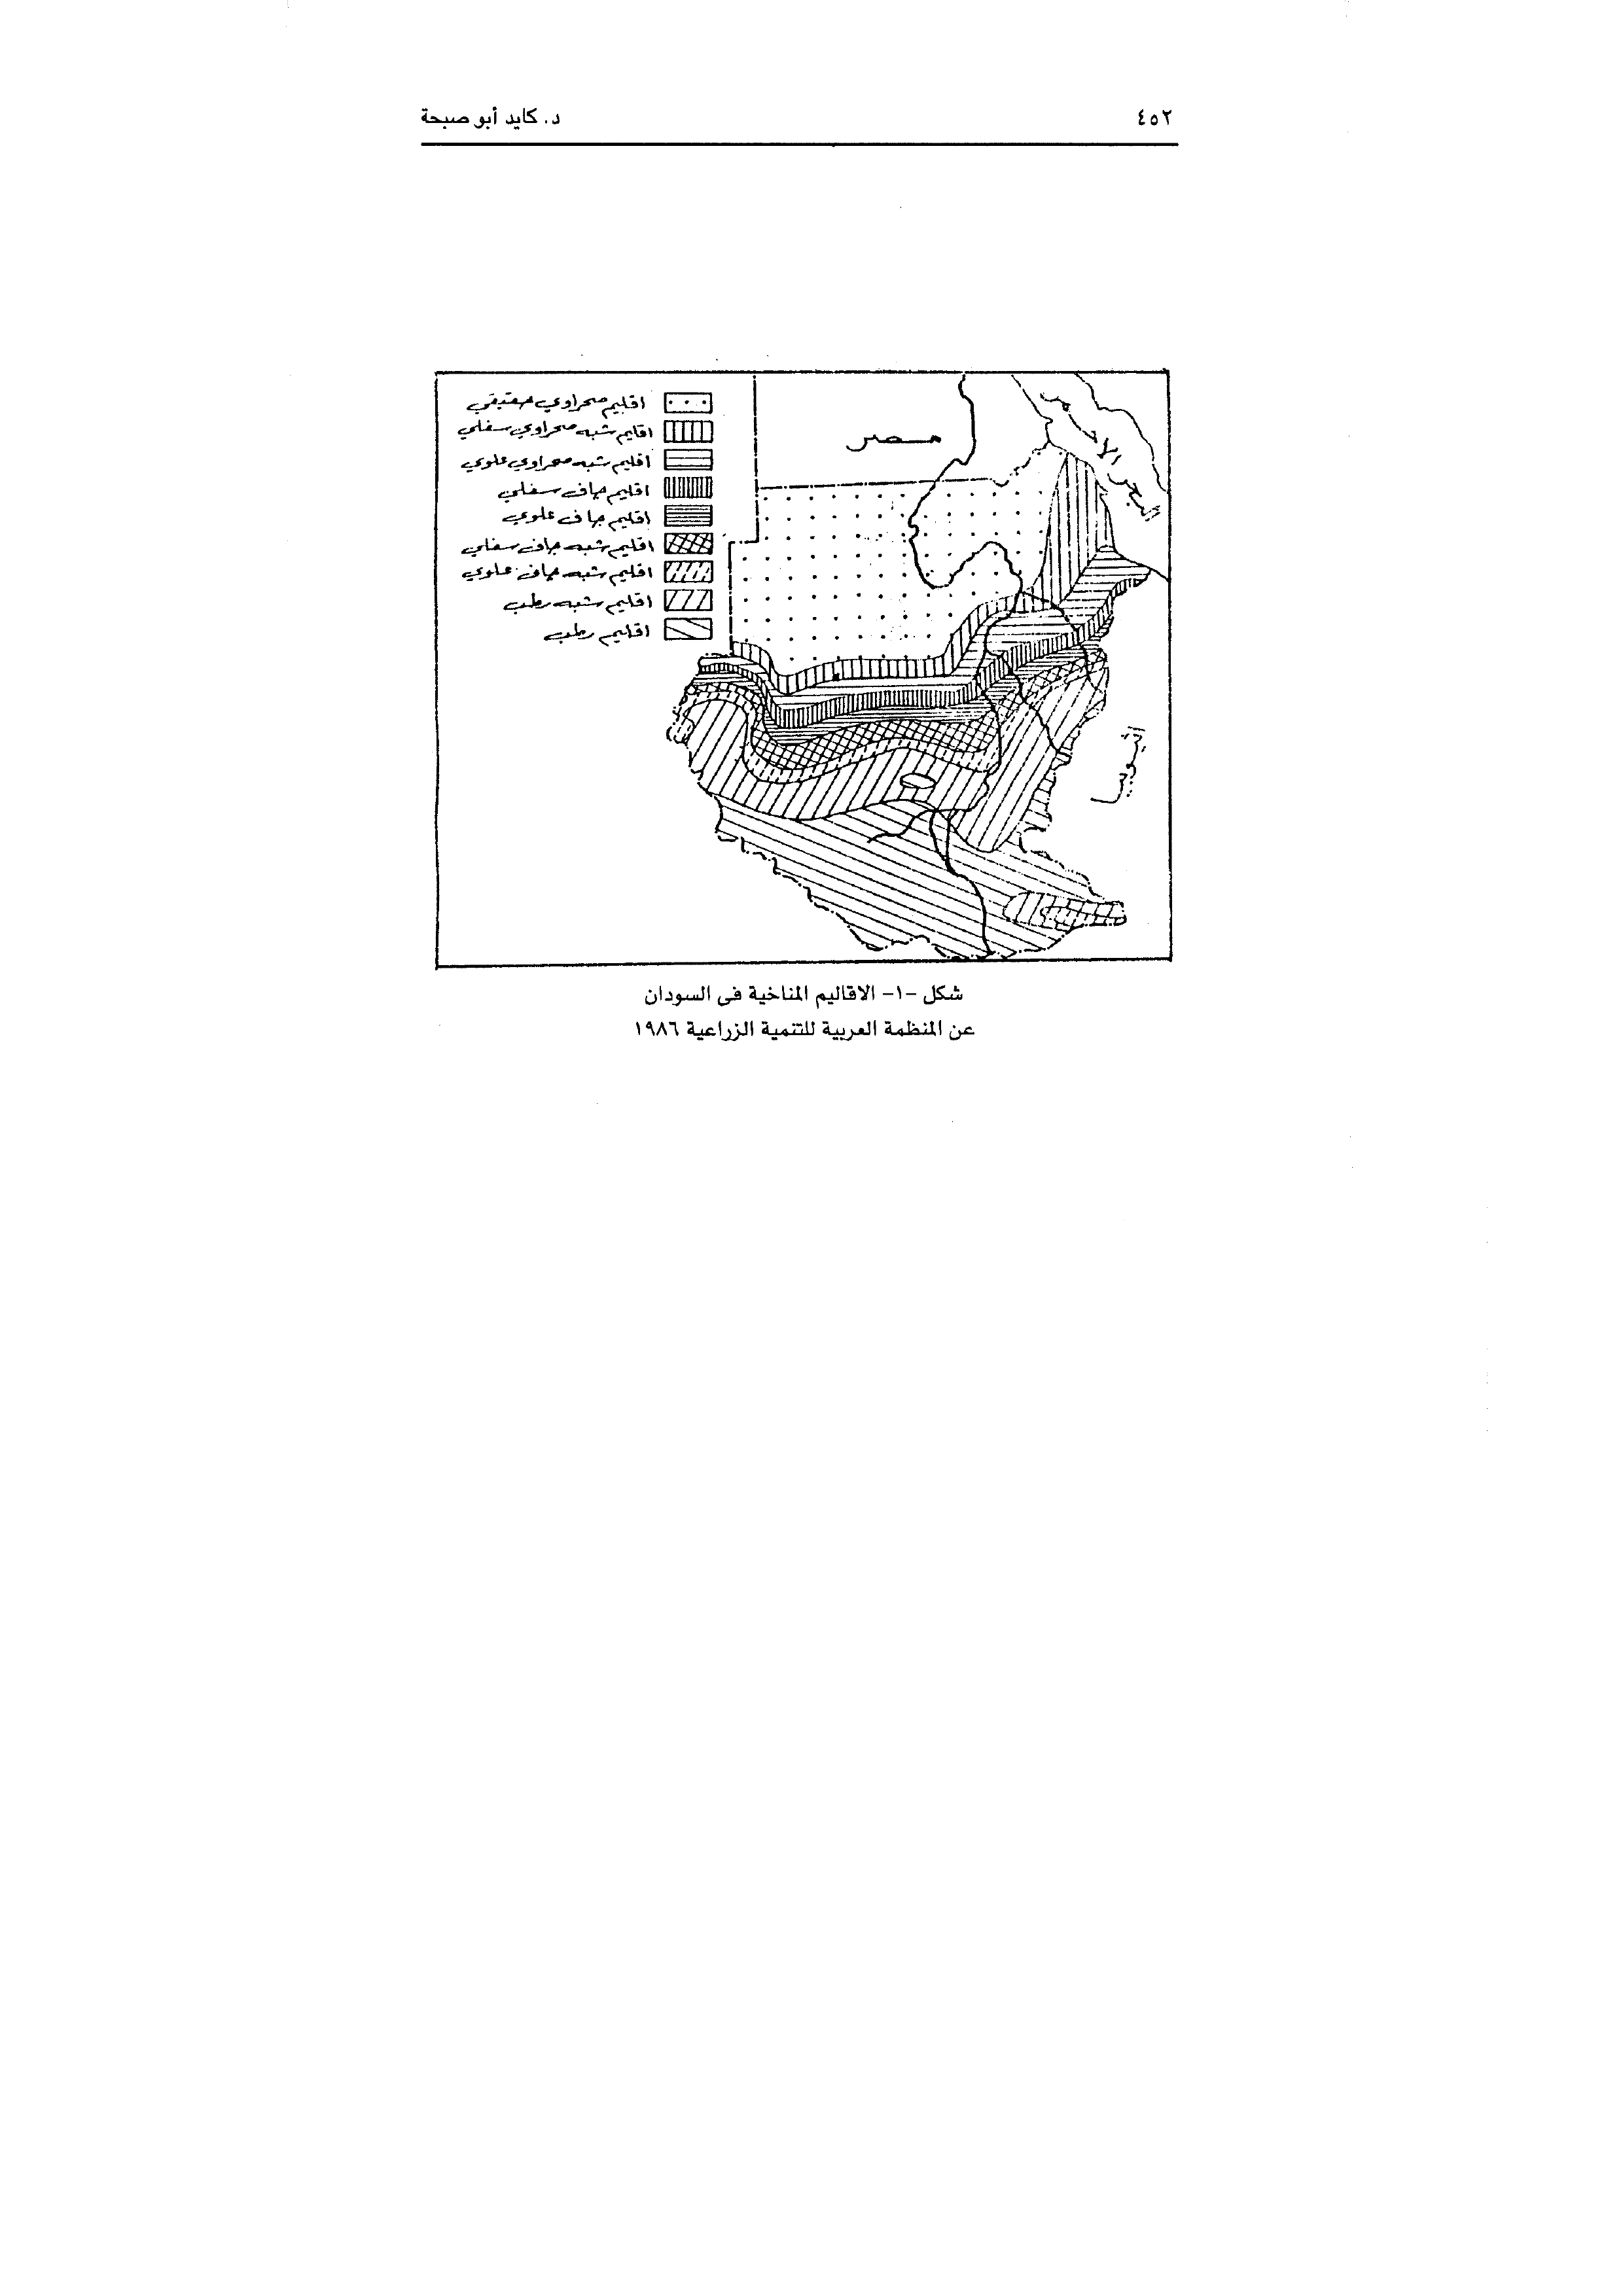 ٤٥٢
د. كايد أبو صبحة
اقليم صحراوي حقيقي
اقليم شبه صحراوي سفلي
اقليم شبه صحراوي علوي
اقليم جاف سفلي
اقليم جاف علوي
اقليم شبه جاف سفلي
اقليم شبه جاف علوي
اقليم شبه رطب
اقليم رطب
مصر
البحر الاحمر
شكل -١- الاقاليم المناخية فى السودان
عن المنظمة العربية للتنمية الزراعية ١٩٨٦